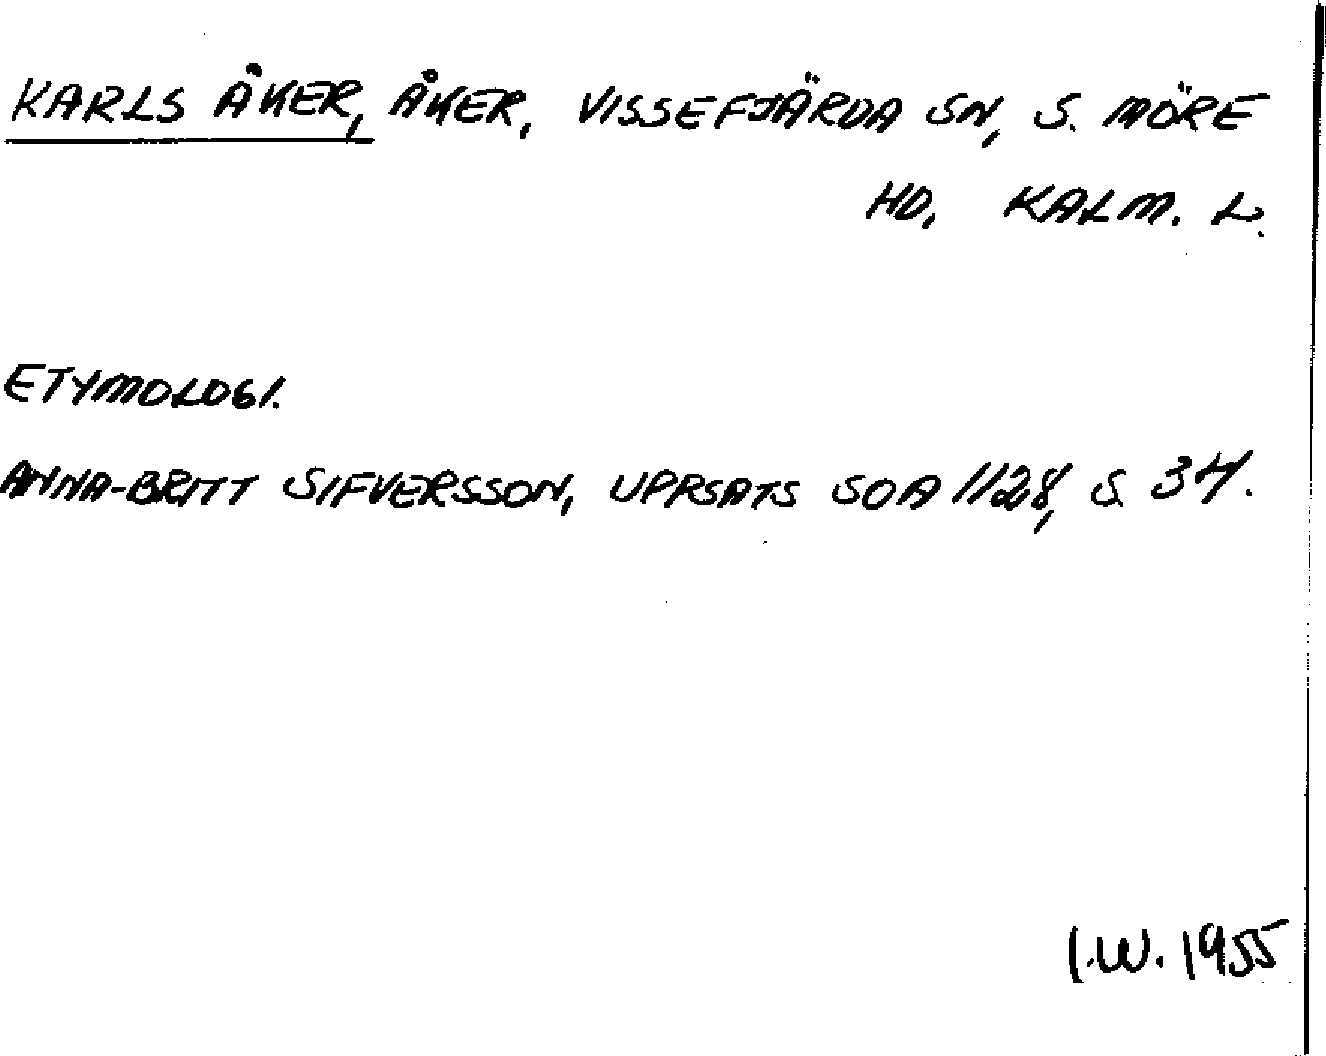 KARLS ÅKER, ÅKER, VISSEFJÄRDA SN, S. MÖRE
HD, KALM. L.
ETYMOLOGI.
ANNA-BRITT SIFVERSSON, UPPSATS SOA 1128, S. 34.
I.W. 1955